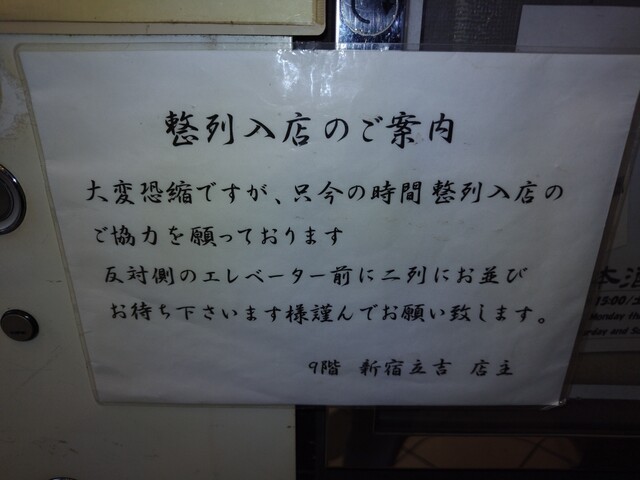 整列入店のご案内
大変恐縮ですが、只今の時間 整列入店の
ご協力を願っております
反対側のエレベーター前に二列にお並び
お待ち下さいます様謹んでお願い致します。
9階 新宿立吉 店主
本酒
15:00/
Monday